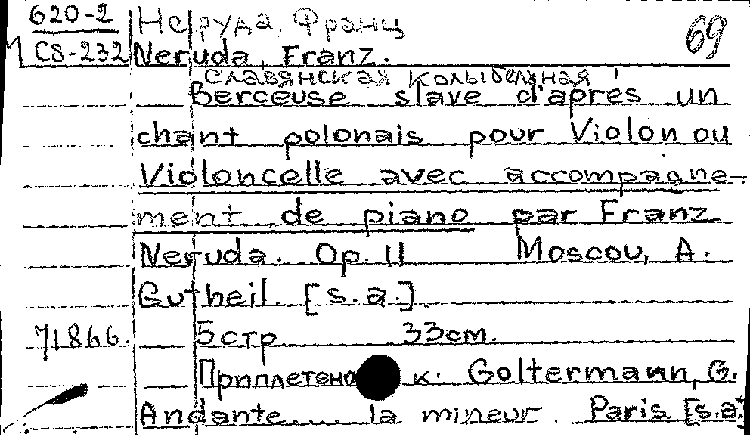 620-2 Неруда, Франц 69
CS-232 Neruda, Franz.
Славянская колыбельная
Berceuse slave d'aprés un
chant polonais pour Violon ou
Violoncelle avec accompagne-
ment de piano par Franz
Neruda. Op. 11 Moscou, A.
Gutheil. [s.a.]
71866. 5 стр 33 cm.
Приплетено к. Goltermann, G.
Andante.... la mineur. Paris [s.a.